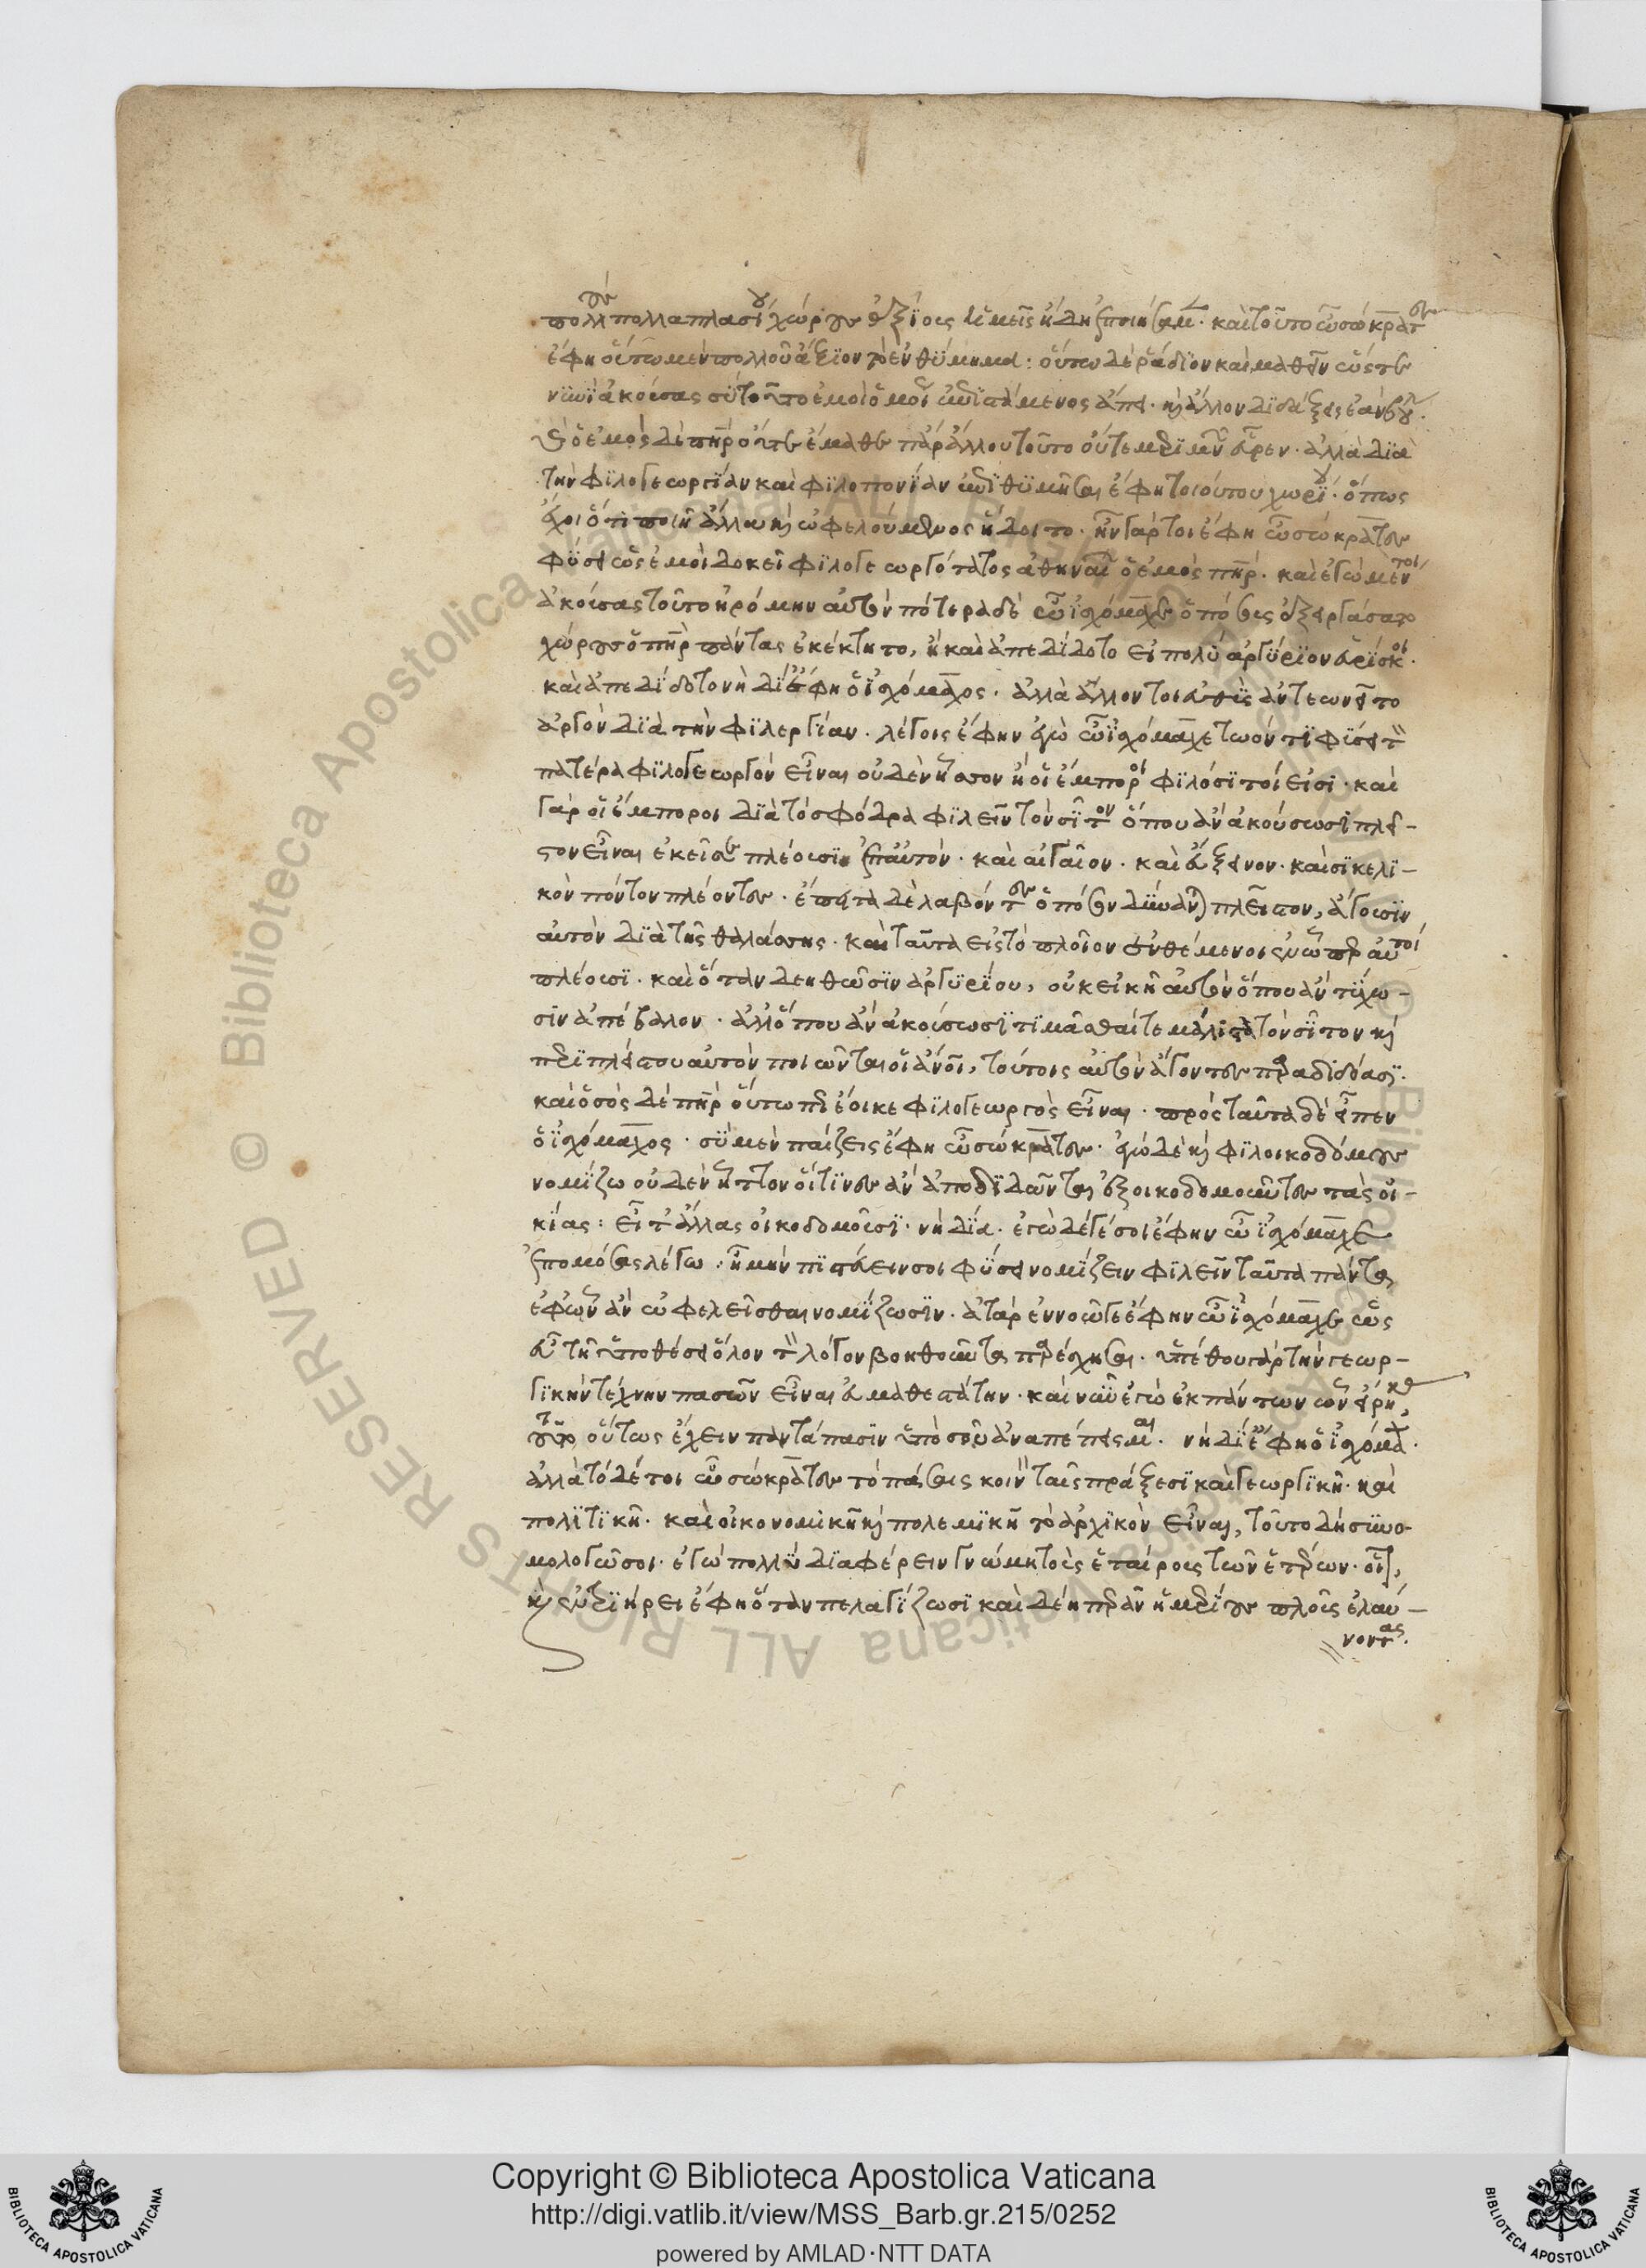 πολλοὺς πολλαπλασίου χώρους ἀξίους ἡμεῖς ἤδη ἐποιήσαμεν. καὶ τοῦτο ὦ σώκρατες
ἔφη οὕτω μὲν πολλοῦ ἄξιον τὸ ἐνθύμημα: οὕτω δὲ ῥάδιον καὶ μαθεῖν ὥστε
νυνὶ ἀκούσας σὺ τοῦτο ἐμοὶ ὁμοίως ἐπιστάμενος ἄπει. καὶ ἄλλον διδάξεις ἐὰν βούλῃ.
καὶ ὁ ἐμὸς δὲ πὴρ οὔτε ἔμαθε παρ' ἄλλου τοῦτο οὔτε μεριμνῶν εὗρεν. ἀλλὰ διὰ
τὴν φιλογεωργίαν καὶ φιλοπονίαν ἐπιθυμῆσαι ἔφη τοιούτου χωρίου. ὅπως
ἔχοι ὅ τι ποιῇ ἅμα καὶ ὠφελούμενος ἥδοιτο. ἦν γάρ τοι ἔφη ὦ σώκρατες
φύσει ὡς ἐμοὶ δοκεῖ φιλογεωργότατος ἀθηναίων ὁ ἐμὸς πὴρ. καὶ ἐγὼ μέντοι
ἀκούσας τοῦτο ἠρόμην αὐτὸν πότερα δὲ ὦ ἰσχόμαχε ὁπόσους ἐξειργάσατο
χώρους ὁ πὴρ πάντας ἐκέκτητο, ἢ καὶ ἀπεδίδοτο εἰ πολὺ ἀργύριον εὑρίσκοι.
καὶ ἀπεδίδοτο νὴ δί' ἔφη ὁ ἰσχόμαχος. ἀλλὰ ἄλλον τοι εὐθὺς ἀντεωνεῖτο
ἀργὸν διὰ τὴν φιλεργίαν. λέγεις ἔφην ἐγὼ ὦ ἰσχόμαχε τῷ ὄντι φύσει τὸν
πατέρα φιλογεωργὸν εἶναι οὐδὲν ἧσσον ἢ οἱ ἔμποροι φιλόσιτοί εἰσι. καὶ
γὰρ οἱ ἔμποροι διὰ τὸ σφόδρα φιλεῖν τὸν σῖτον ὅπου ἂν ἀκούσωσι πλεῖ-
στον εἶναι ἐκεῖσε πλέουσιν ἐπ' αὐτὸν. καὶ αἰγαῖον. καὶ εὔξεινον. καὶ σικελι-
κὸν πόντον πλέοντες. ἔπειτα δὲ λαβόντες ὁπόσον δύνανται πλεῖστον, ἄγουσιν
αὐτὸν διὰ τῆς θαλάσσης. καὶ ταῦτα εἰς τὸ πλοῖον ἐνθέμενοι ἐν ᾧπερ αὐτοὶ
πλέουσι. καὶ ὅταν δεηθῶσιν ἀργυρίου, οὐκ εἰκῆ αὐτὸν ὅπου ἂν τύχω-
σιν ἀπέβαλον. ἀλλ' ὅπου ἂν ἀκούσωσι τιμᾶσθαί τε μάλιστα τὸν σῖτον καὶ
περὶ πλείστου αὐτὸν ποιῶνται οἱ ἄνοι, τούτοις αὐτὸν ἄγοντες παραδιδόασι.
καὶ ὁ σὸς δὲ πὴρ οὕτω πως ἔοικε φιλογεωργὸς εἶναι. πρὸς ταῦτα δὲ εἶπεν
ὁ ἰσχόμαχος. σὺ μὲν παίζεις ἔφη ὦ σώκρατες. ἐγὼ δὲ καὶ φιλοικοδόμους
νομίζω οὐδὲν ἧττον οἵτινες ἂν ἀποδιδῶνται ἐξοικοδομοῦντες τὰς οἰ-
κίας: εἶτ' ἄλλας οἰκοδομοῦσι. νὴ δία. ἐγὼ δέ γέ σοι ἔφην ὦ ἰσχόμαχε
ἐπομόσας λέγω. ἦ μὴν πιστεύειν σοι φύσει νομίζειν φιλεῖν ταῦτα πάντας
ἐφ' ὧν ἂν ὠφελεῖσθαι νομίζωσιν. ἀτὰρ ἐννοῶ γε ἔφην ὦ ἰσχόμαχε ὡς
εὖ τῇ ὑποθέσει ὅλον τὸν λόγον βοηθοῦντα παρέσχησαι. ὑπέθου γὰρ τὴν γεωρ-
γικὴν τέχνην πασῶν εἶναι εὐμαθεστάτην. καὶ νῦν ἐγὼ ἐκ πάντων ὧν εἴρηκας,
τοῦθ' οὕτως ἔχειν παντάπασιν ὑπὸ σοῦ ἀναπέπεισμαι. νὴ δί' ἔφη ὁ ἰσχόμαχος.
ἀλλὰ τόδε τοι ὦ σώκρατες τὸ πάσαις κοινὸν ταῖς πράξεσι καὶ γεωργικῇ. καὶ
πολιτικῇ. καὶ οἰκονομικῇ καὶ πολεμικῇ τὸ ἀρχικὸν εἶναι, τοῦτο δὴ συνο-
μολογῶ σοι. ἐγὼ πολλὺ διαφέρειν γνώμῃ τοὺς ἑταίρους τῶν ἑτέρων. οἷον,
καὶ ἐν τριήρει ἔφη ὅταν πελαγίζωσι καὶ δέῃ περᾶν ἡμερίους πλοῦς ἐλαύ-
νοντας.
Copyright © Biblioteca Apostolica Vaticana
http://digi.vatlib.it/view/MSS_Barb.gr.215/0252
powered by AMLAD·NTT DATA